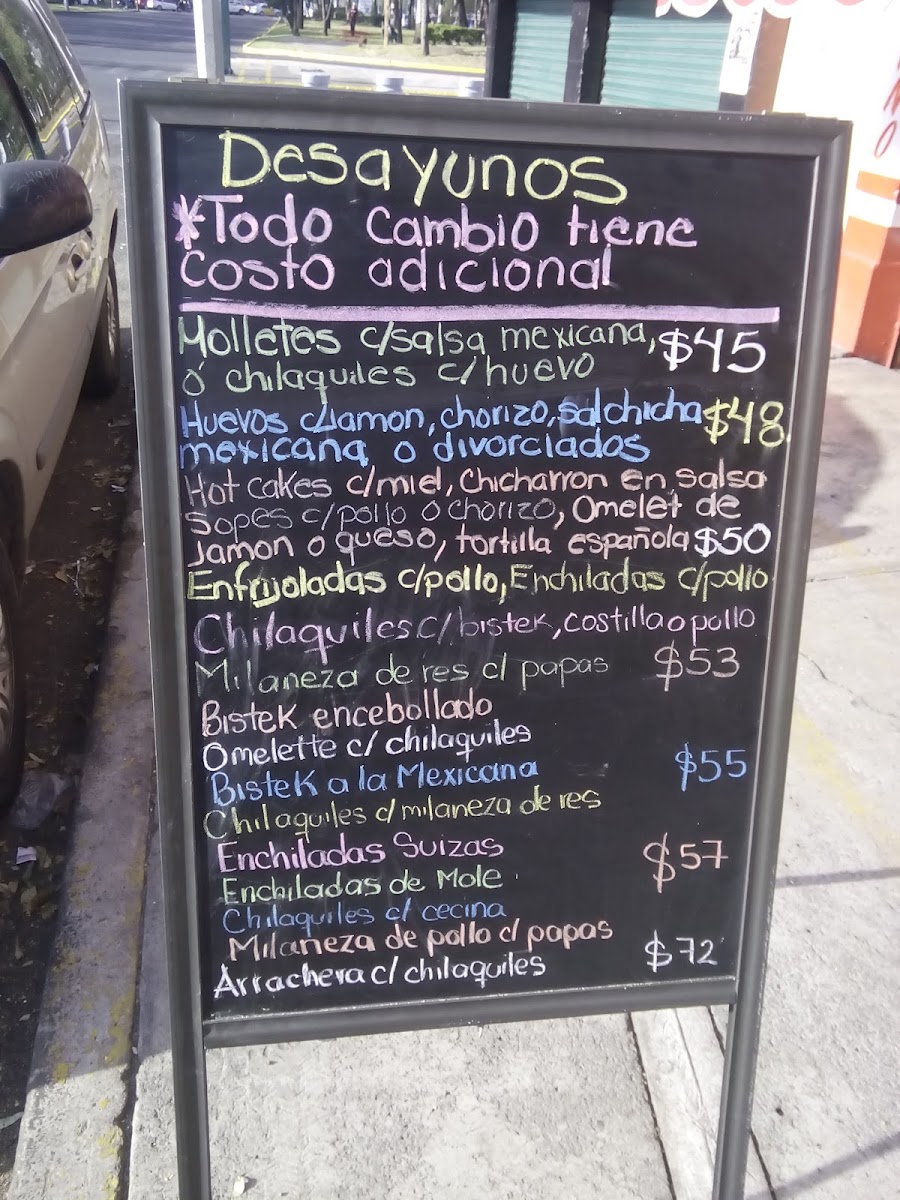 Desayunos
*Todo cambio tiene
costo adicional
Molletes c/salsa mexicana, $45
ó chilaquiles c/huevo
Huevos c/Jamon, chorizo, salchicha $48
mexicana o divorciados
Hot cakes c/miel, Chicharron en salsa
Sopes c/pollo ó chorizo, Omelet de
Jamon o queso, tortilla española $50
Enfrijoladas c/pollo, Enchiladas c/pollo
Chilaquiles c/bistek, costilla o pollo
Milaneza de res c/ papas $53
Bistek encebollado
Omelette c/ chilaquiles
Bistek a la Mexicana $55
Chilaquiles c/ milaneza de res
Enchiladas Suizas $57
Enchiladas de Mole
Chilaquiles c/ cecina
Milaneza de pollo c/ papas
Arrachera c/ chilaquiles $72